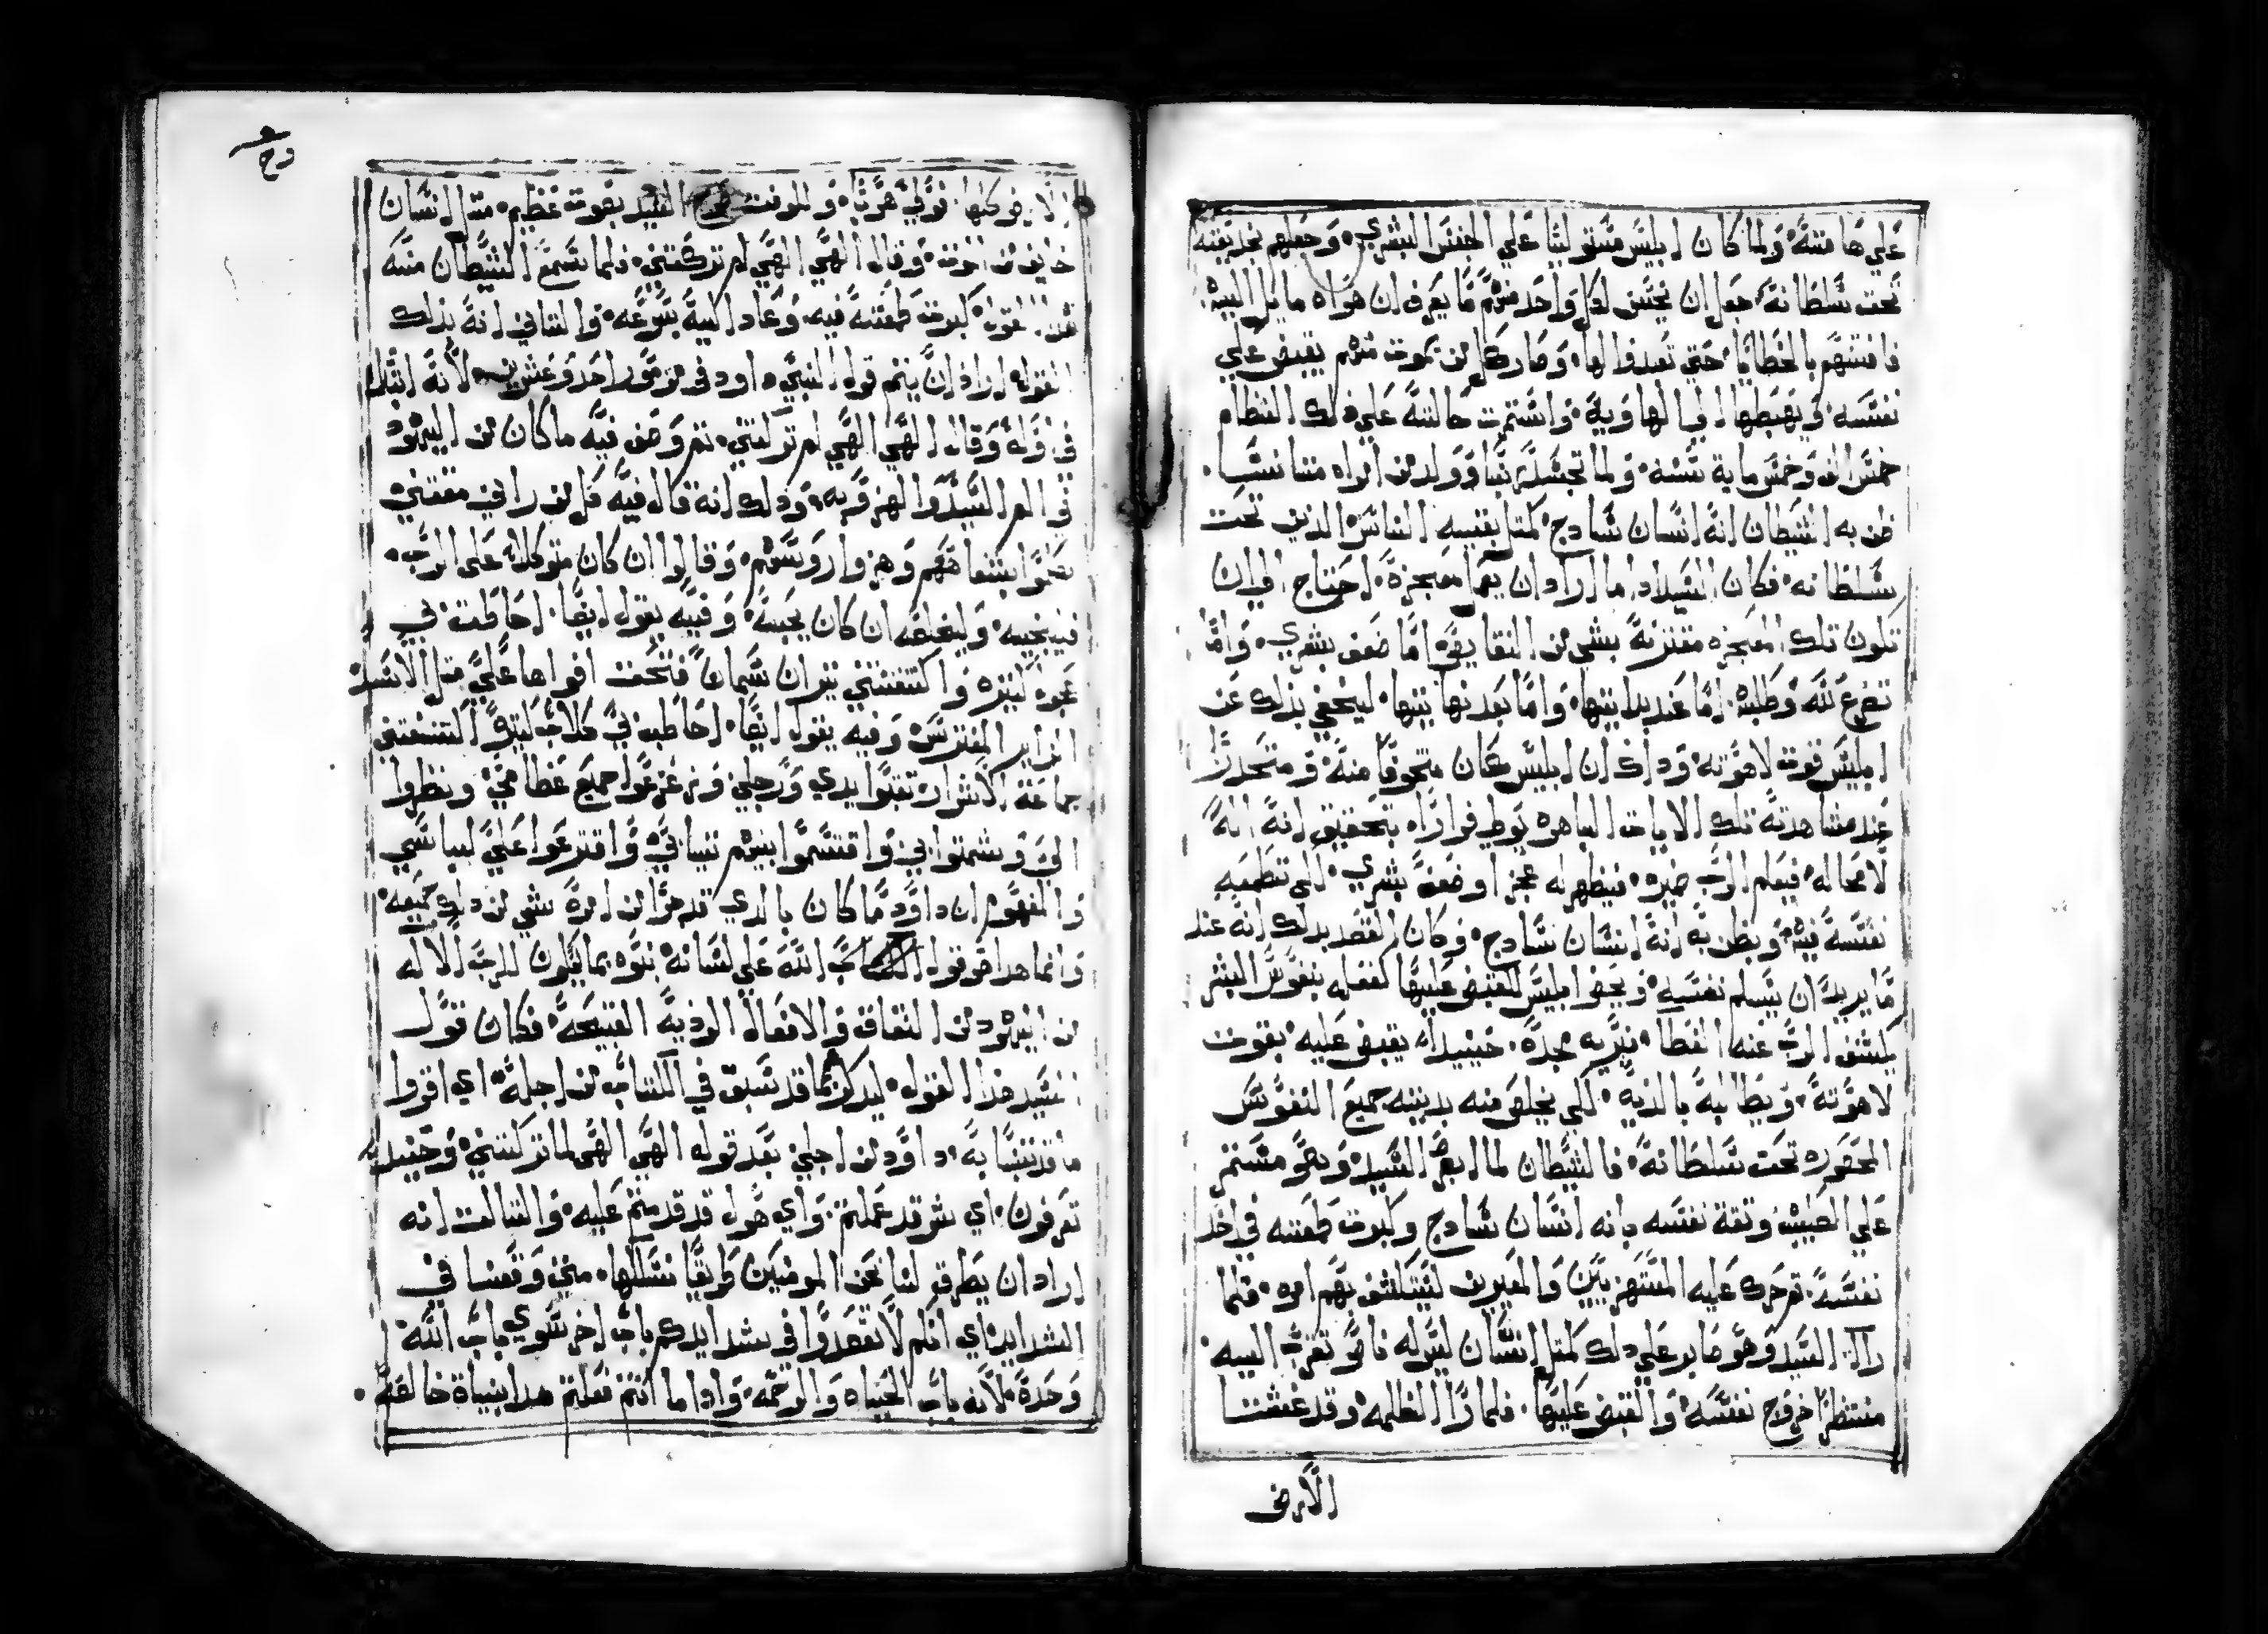 علي هامته. ولما كان ابليس مستوليًا علي الجنس البشري. وجعلهم بخديعته
تحت سلطانه. جعل ان يحسن لكل واحد منهم ما يعرف ان هواه مايل اليه.
فافتنهم بالخطايا. حتي تعبدوا لها. وصار كل من يموت منهم يقبض علي
نفسه. ويهبطها الي الهاوية. واستمرت حالته علي ذلك النظام
خمس الاف وخمس ماية سنه. ولما تجسد ربنا وولد من امراه مثلنا نسبيا.
ظن به الشيطان انه انسان سادج. كمثل بقيه الناس الذين تحت
سلطانه. فكان السيد اذا ما اراد ان يعمل معجزة. احتاج الي ان
تكون تلك المعجزه مقترنة بشي من النقايص. اما ضعف بشري. واما
تضرع لله وطلبه. اما عند بدايتها. واما بعد نهايتها. ليخفي بذلك عن
ابليس قوت لاهوته. وذلك ان ابليس كان متخوفًا منه. ومتحدرًا
عند مشاهدته تلك الايات الباهره يوطد قراراه بتحقيق انه اله
لا محاله. فيعلم الرب ضميره. فيظهر له عجز او ضعف بشري. لكي تطمعه
نفسه فيه. ويظن به انه انسان سادج. وكان القصد بدلك انه عند
ما يريد ان يسلم نفسه. ويحضر ابليس ليقبض عليها كفعله بنفوس البشر
يكشف الرب عنه الغطا. فيريه مجده. حينيدا. يقبض عليه بقوت
لاهوته. ويطالبه بالديه. لكي يخلص منه بديته جميع النفوس
المحصوره تحت سلطانه. فالشيطان لما ابصر السيد. وهو مستمر
علي الصليب. وثقة نفسه بانه انسان سادج وكبرت طمعته في اخد
نفسه. تحرك عليه المستهزيين والمعيرين ليستكشف بهم امره. فلما
راا السيد وهو صابر علي دلك كمثل انسان ليس له ناصر تقرب اليه.
منتظرًا خروج نفسه. والقبض عليها. فلما راا الظلمه وقد غشت
الارض
الارض كلها. توفي هربًا. والموقت صرخ السيد بصوت عظيم. مثل انسان
خايف من الموت. وقال الهي الهي لم تركتني. فلما سمع الشيطان منه
هدا القول. كبرت طمعته فيه. وعاد اليه بسرعه. والثاني انه بذلك
القول. اراد ان يتم قول النبي داود في مزمور احد وعشرين. لانه ابتدا
في اوله وقال الهي الهي لم تركتني. تم وصف فيه ما كان من اليهود
في الم السيد والهزو به. ودلك انه قال فيه كل من راني مقتني
صروا بشفاههم وهزوا روسهم. وقالوا ان كان متوكلا علي الرب.
فينجيه. وليخلصه ان كان يحبه. وفيه يقول ايضًا. احاطت بي
عجول كتيره واكتنفتني تيران سمان. فتحت افواها علي مثل الاسد
الزاير المفترس. وفيه يقول ايضًا. احاطت بي كلاب كتيره اكتنفتني
جماعة الاشرار. تقبوا يدي ورجلي وزعزعوا جميع عظامي. ونظروا
الي وشمتوا بي. واقتسموا بينهم تيابي. واقترعوا علي لباسي
والمفهوم ان داود ما كان بالدي قد مر من امره شي من دلك جميعه.
وانما هدا هو قول الله علي لسانه. نبوه بما يكون للرب الاله
من اليهود من النفاق والافعال الرديه القبيحه. فكان قول
السيد هذا القول. ليدكر بما قد سبق في الكتاب من اجله. اي اقروا
ما قد تنبا به. داود من اجلي بعد قوله الهي الهي لما تركتني. وحينيد
تعرفون. اي شر قد عملتم. واي هول قد قدمتم عليه. والثالت انه
اراد ان يطرق لنا نحن المومنين طريقًا نسلكها. متي وقعنا في
الشدايد. اي انكم لا تقصدوا في شدايدكم باب اخر سوي باب الله
وحده. لانه باب الحياه والرحمه. واداما انتم فعلتم هدا بنياة خالصه.